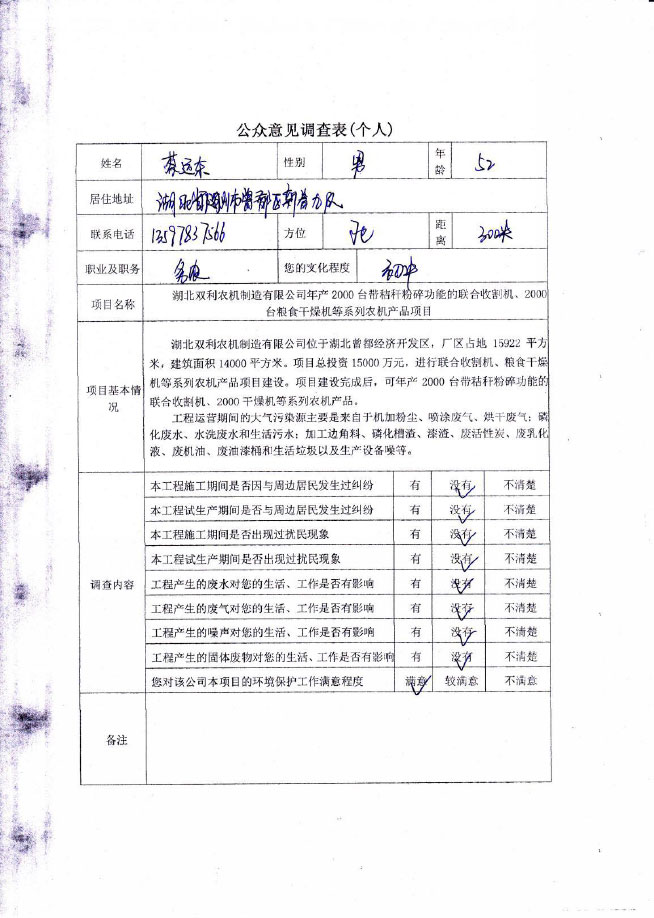 公众意见调查表(个人)
姓名 蔡运东 性别 男 年龄 52
居住地址 湖北省随州市曾都区
联系电话 13597837566 方位 距离 300米
职业及职务 务农 您的文化程度 初中
项目名称 湖北双利农机制造有限公司年产 2000 台带秸秆粉碎功能的联合收割机、2000
台粮食干燥机等系列农机产品项目
项目基本情况
湖北双利农机制造有限公司位于湖北曾都经济开发区，厂区占地 15922 平方
米，建筑面积 14000 平方米。项目总投资 15000 万元，进行联合收割机、粮食干燥
机等系列农机产品项目建设。项目建设完成后，可年产 2000 台带秸秆粉碎功能的
联合收割机、2000 干燥机等系列农机产品。
工程运营期间的大气污染源主要是来自于机加粉尘、喷涂废气、烘干废气；磷
化废水、水洗废水和生活污水；加工边角料、磷化槽渣、漆渣、废活性炭、废乳化
液、废机油、废油漆桶和生活垃圾以及生产设备噪等。
调查内容
本工程施工期间是否因与周边居民发生过纠纷 有 没有 不清楚
本工程试生产期间是否与周边居民发生过纠纷 有 没有 不清楚
本工程施工期间是否出现过扰民现象 有 没有 不清楚
本工程试生产期间是否出现过扰民现象 有 没有 不清楚
工程产生的废水对您的生活、工作是否有影响 有 没有 不清楚
工程产生的废气对您的生活、工作是否有影响 有 没有 不清楚
工程产生的噪声对您的生活、工作是否有影响 有 没有 不清楚
工程产生的固体废物对您的生活、工作是否有影响 有 没有 不清楚
您对该公司本项目的环境保护工作满意程度 满意 较满意 不满意
备注